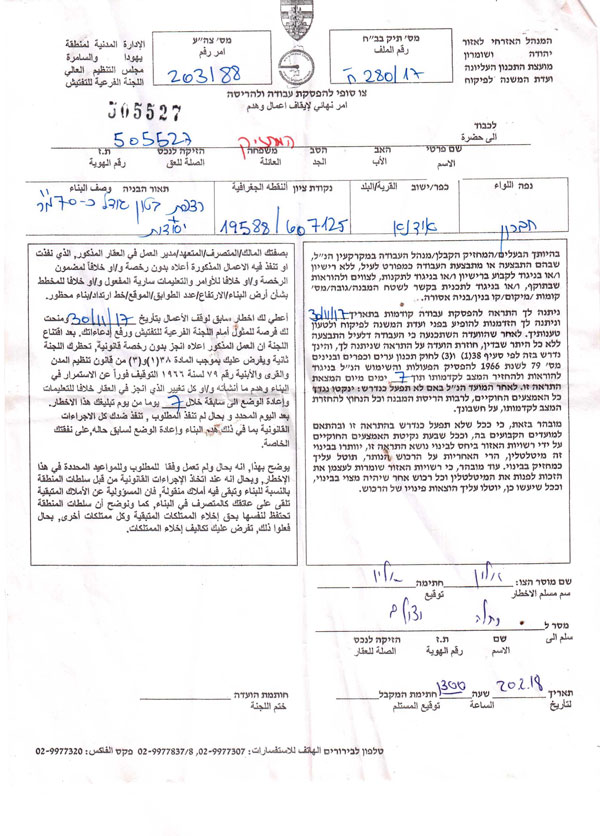 המנהל האזרחי לאזור
יהודה ושומרון
מועצת התכנון העליונה
ועדת המשנה לפיקוח
מס' תיק בב"ח
رقم الملف
ה 280/17
מס' צה"ע
امر رقم
203/88
الإدارة المدنية لمنطقة
يهودا والسامرة
مجلس التنظيم العالي
اللجنة الفرعية للتفتيش
צו סופי להפסקת עבודה ולהריסה
امر نهائي لإيقاف اعمال وهدم
505527
לכבוד
الى حضرة
המחזיק
505527
שם פרטי
האב
הסב
משפחה
הזיקה לנכס
ת.ז
الاسم
الأب
الجد
العائلة
الصلة للعق
رقم الهوية
נפה اللواء
כפר/ישוב القرية/البلد
נקודת ציון النقطه الجغرافية
תאור הבניה وصف البناء
חברון
אידנא
19588/607125
רצפת בטון גודל כ-70 מ"ר
+
יסודות
בהיותך הבעלים/המחזיק הקבלן/מנהל העבודה במקרקעין הנ"ל,
שבהם התבצעה או מתבצעת העבודה כמפורט לעיל, ללא רישיון
ו/או בניגוד לקבוע ברישיון ו/או בניגוד לתקנות, לצווים ולהוראות
שבתוקף, ו/או בניגוד לתכנית בקשר לשטח המבנה/גובה/מס'
קומות /מיקום/קו בנין/בניה אסורה.
ניתנה לך התראה להפסקת עבודה קודמות בתאריך 30/11/17
וניתנה לך הזדמנות להופיע בפני ועדת המשנה לפיקוח ולטעון
טענותיך. לאחר שהוועדה השתכנעה כי העבודה דלעיל התבצעה
ללא כל היתר שבדין, חוזרת הועדה על התראה שניתנה לך, והינך
נדרש בזה לפי סעיף 38(1) ו(3) לחוק תכנון ערים וכפרים ובנינים
מס' 79 לשנת 1966 להפסיק הפעולות והשימוש הנ"ל בניגוד
להוראות ולהחזיר המצב לקדמותו תוך 7 ימים מיום המצאת
התראה זו. לאחר המועד הנ"ל באם לא תפעל כנדרש: ינקטו נגדך
כל האמצעים החוקיים, לרבות הריסת המבנה וכל הנחוץ להחזרת
המצב לקדמותו, על חשבונך.
מובהר בזאת, כי ככל שלא תפעל כנדרש בהתראה זו ובהתאם
למועדים הקבועים בה, וככל שבעת נקיטת האמצעים החוקיים
על ידי רשויות האזור ביחס לבינוי נושא התראה זו, יוותרו בבינוי
זה מיטלטלין, הרי האחריות על הרכוש הנותר, תוטל עליך
כמחזיק בבינוי. עוד מובהר, כי רשויות האזור שומרות לעצמן את
הזכות לפנות את המיטלטלין וכל רכוש אחר שיהיה מצוי בבינוי,
וככל שיעשו כן, יוטלו עליך הוצאות פינויו של הרכוש.
بصفتك المالك/المتصرف/المتعهد/مدير العمل في العقار المذكور, الذي نفذت
او تنفذ فيه الاعمال المذكورة أعلاه بدون رخصة و/او خلافا لمضمون
الرخصة و/او خلافا للأوامر والتعليمات سارية المفعول و/او خلافا للمخطط
بشأن أرض البناء/الارتفاع/عدد الطوابق/الموقع/خط ارتداد/بناء محظور.
أعطي لك اخطار سابق لوقف الأعمال بتاريخ 30/11/17 ومنحت
لك فرصة للمثول أمام اللجنة الفرعية للتفتيش ورفع إدعاءاتك. بعد اقتناع
اللجنة ان العمل المذكور أعلاه انجز بدون رخصة قانونية, تحظرك اللجنة
ثانية ويفرض عليك بموجب المادة ٣٨(١)و(٣) من قانون تنظيم المدن
والقرى والأبنية رقم ٧٩ لسنة ١٩٦٦ التوقيف فوراً عن الاستمرار في
البناء وهدم ما أنشأته و/او كل تغيير الذي انجز في العقار خلافا للتعليمات
وإعادة الوضع الى سابقة خلال 7 يوما من يوم تبليغك هذا الاخطار.
بعد اليوم المحدد و بحال لم تنفذ المطلوب , تنفذ ضدك كل الاجراءات
القانونية بما في ذلك, هدم البناء وإعادة الوضع لسابق حاله, على نفقتك
الخاصة.
يوضح بهذا, انه بحال ولم تعمل وفقا للمطلوب وللمواعيد المحددة في هذا
الإخطار, وبحال انه عند اتخاذ الإجراءات القانونية من قبل سلطات المنطقة
بالنسبة للبناء وتبقى فيه أملاك منقولة, فان المسؤولية عن الأملاك المتبقية
تلقى على عاتقك كالمتصرف في البناء, كما ونوضح أن سلطات المنطقة
تحتفظ لنفسها بحق إخلاء الممتلكات المتبقية وكل ممتلكات أخرى, بحال
فعلوا ذلك, تفرض عليك تكاليف إخلاء الممتلكات.
שם מוסר הצו:
חתימה
سم مسلم الاخطار
توقيع
מסר ל
سلم الى
שם
ת.ז
הזיקה לנכס
الاسم
رقم الهوية
الصلة للعقار
תאריך 20.2.18 שעה
חתימת המקבל
لتأريخ
الساعة
توقيع المستلم
חותמת הועדה
ختم اللجنة
טלפון לבירורים الهاتف للاستفسارات: 02-9977307, 02-9977837/8 פקס الفاكس: 02-9977320